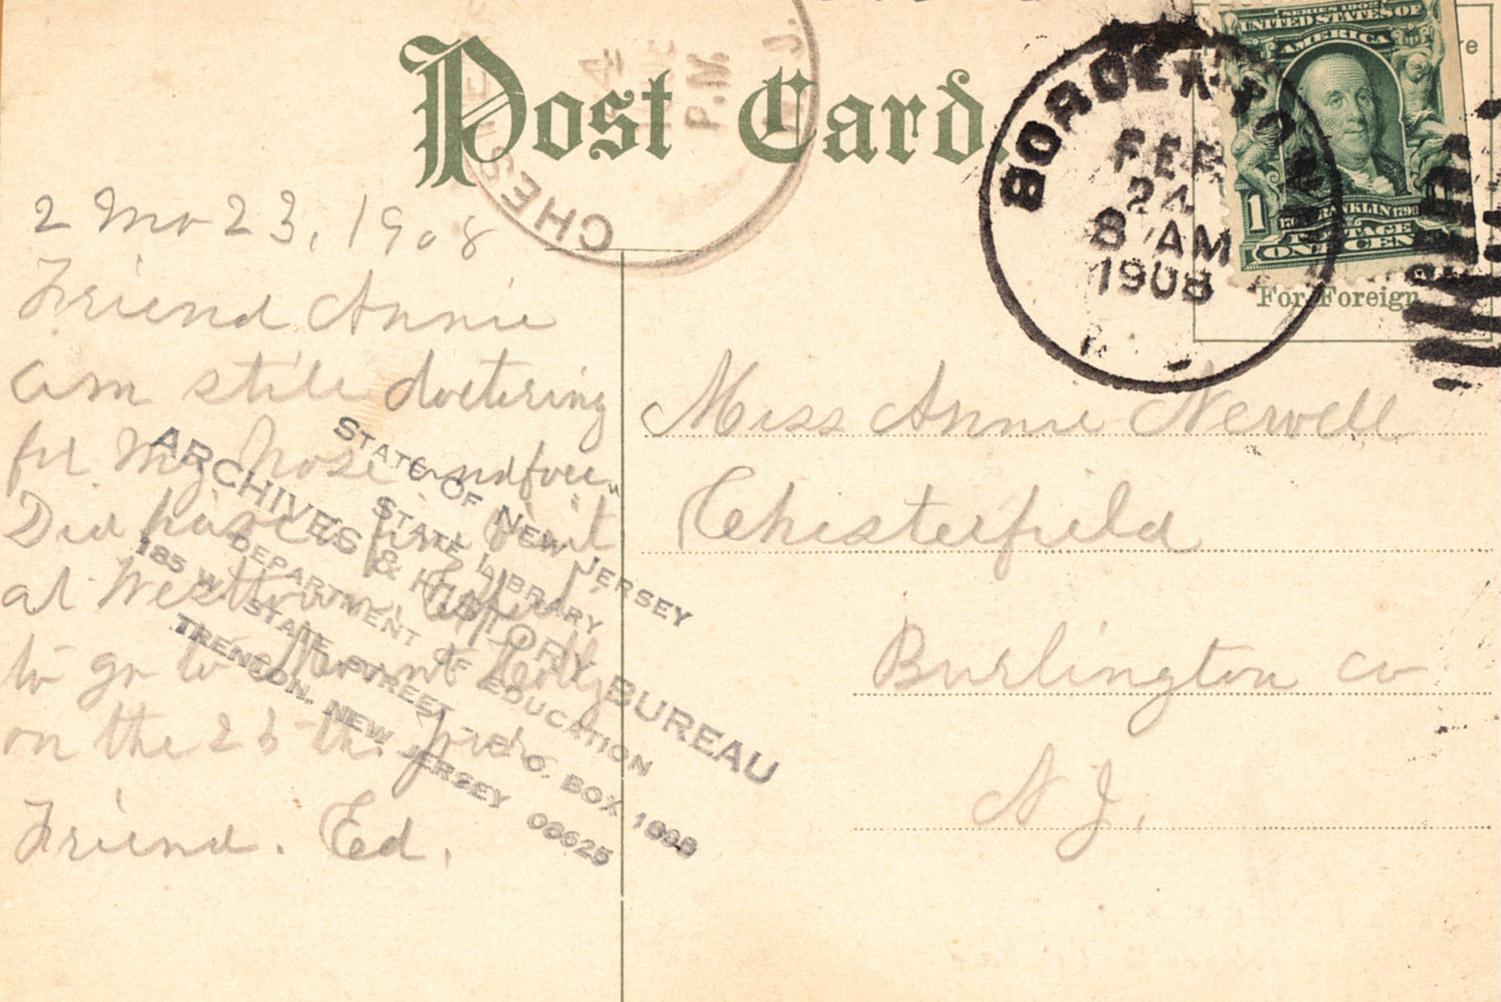 Post Card.
CHES
P.M.
N.J.
BORDENTOWN
FEB
24
8 AM
1908
SERIES 1902
UNITED STATES OF
AMERICA
1
FRANKLIN
POSTAGE
ONE CEN
For Foreign
2 Mo 23, 1908
Friend Annie
am still doctering
for my nose and face.
Did have fine visit
at Westtown.
to go to
on the 26th. your
Friend. Ed.
Miss Annie Newell
Chesterfield
Burlington Co
N J.
STATE OF NEW JERSEY
STATE LIBRARY
ARCHIVES & HISTORY BUREAU
DEPARTMENT OF EDUCATION
185 W. STATE STREET - P. O. BOX 1898
TRENTON, NEW JERSEY 08625